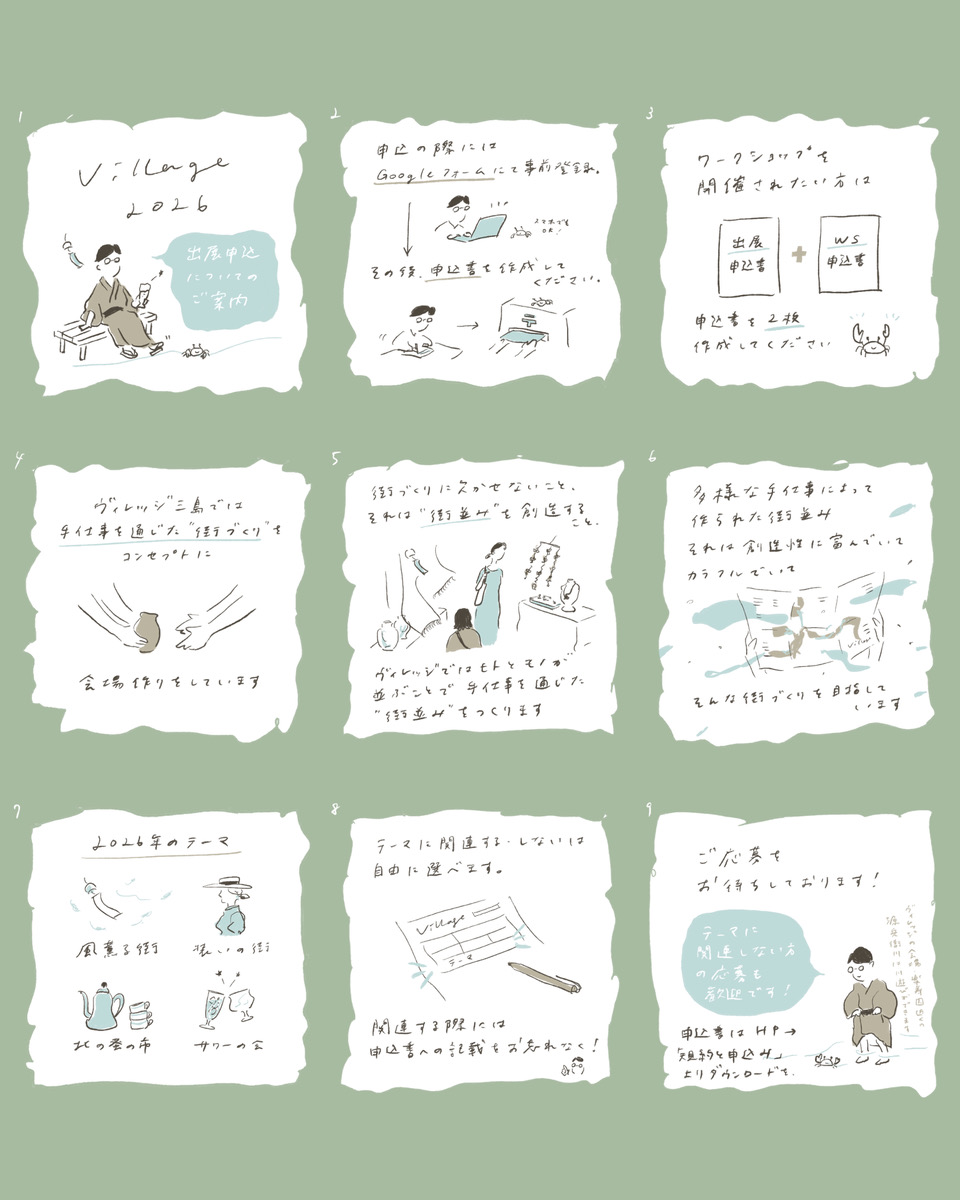 1
Village
2026
出展申込
についての
ご案内
2
申込の際には
Googleフォームにて事前登録。
スマホでも
OK!
その後、申込書を作成して
ください。
〒
3
ワークショップを
開催されたい方は
出展
申込書
+
WS
申込書
申込書を2枚
作成してください
4
ヴィレッジ三島では
手仕事を通じた"街づくり"を
コンセプトに
会場作りをしています
5
街づくりに欠かせないこと、
それは"街並み"を創造する
こと。
ヴィレッジではヒトとモノが
並ぶことで手仕事を通じた
"街並み"をつくります
6
多様な手仕事によって
作られた街並み
それは創造性に富んでいて
カラフルでいて
Village
そんな街づくりを目指して
います
7
2026年のテーマ
風薫る街
装いの街
北の蚤の市
サワーの会
8
テーマに関連する・しないは
自由に選べます。
Village
テーマ
関連する際には
申込書への記載をお忘れなく!
9
ご応募を
お待ちしております!
テーマに
関連しない方
の応募も
歓迎です!
ヴィレッジの会場 楽寿園近くの
源兵衛川は川遊びができます
申込書はHP→
「規約と申込み」
よりダウンロードを。